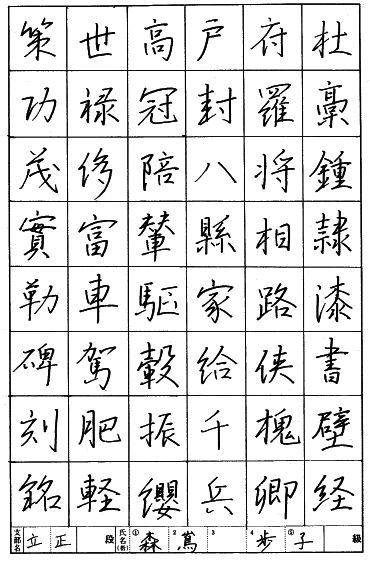 杜稾鍾隷漆書壁経
府羅将相路侠槐卿
戸封八縣家給千兵
高冠陪輦驅轂振纓
世禄侈富車駕肥軽
策功茂實勒碑刻銘
支部名 立正 段 氏名(号) ①森 2蔦 3 4歩 ⑤子 級